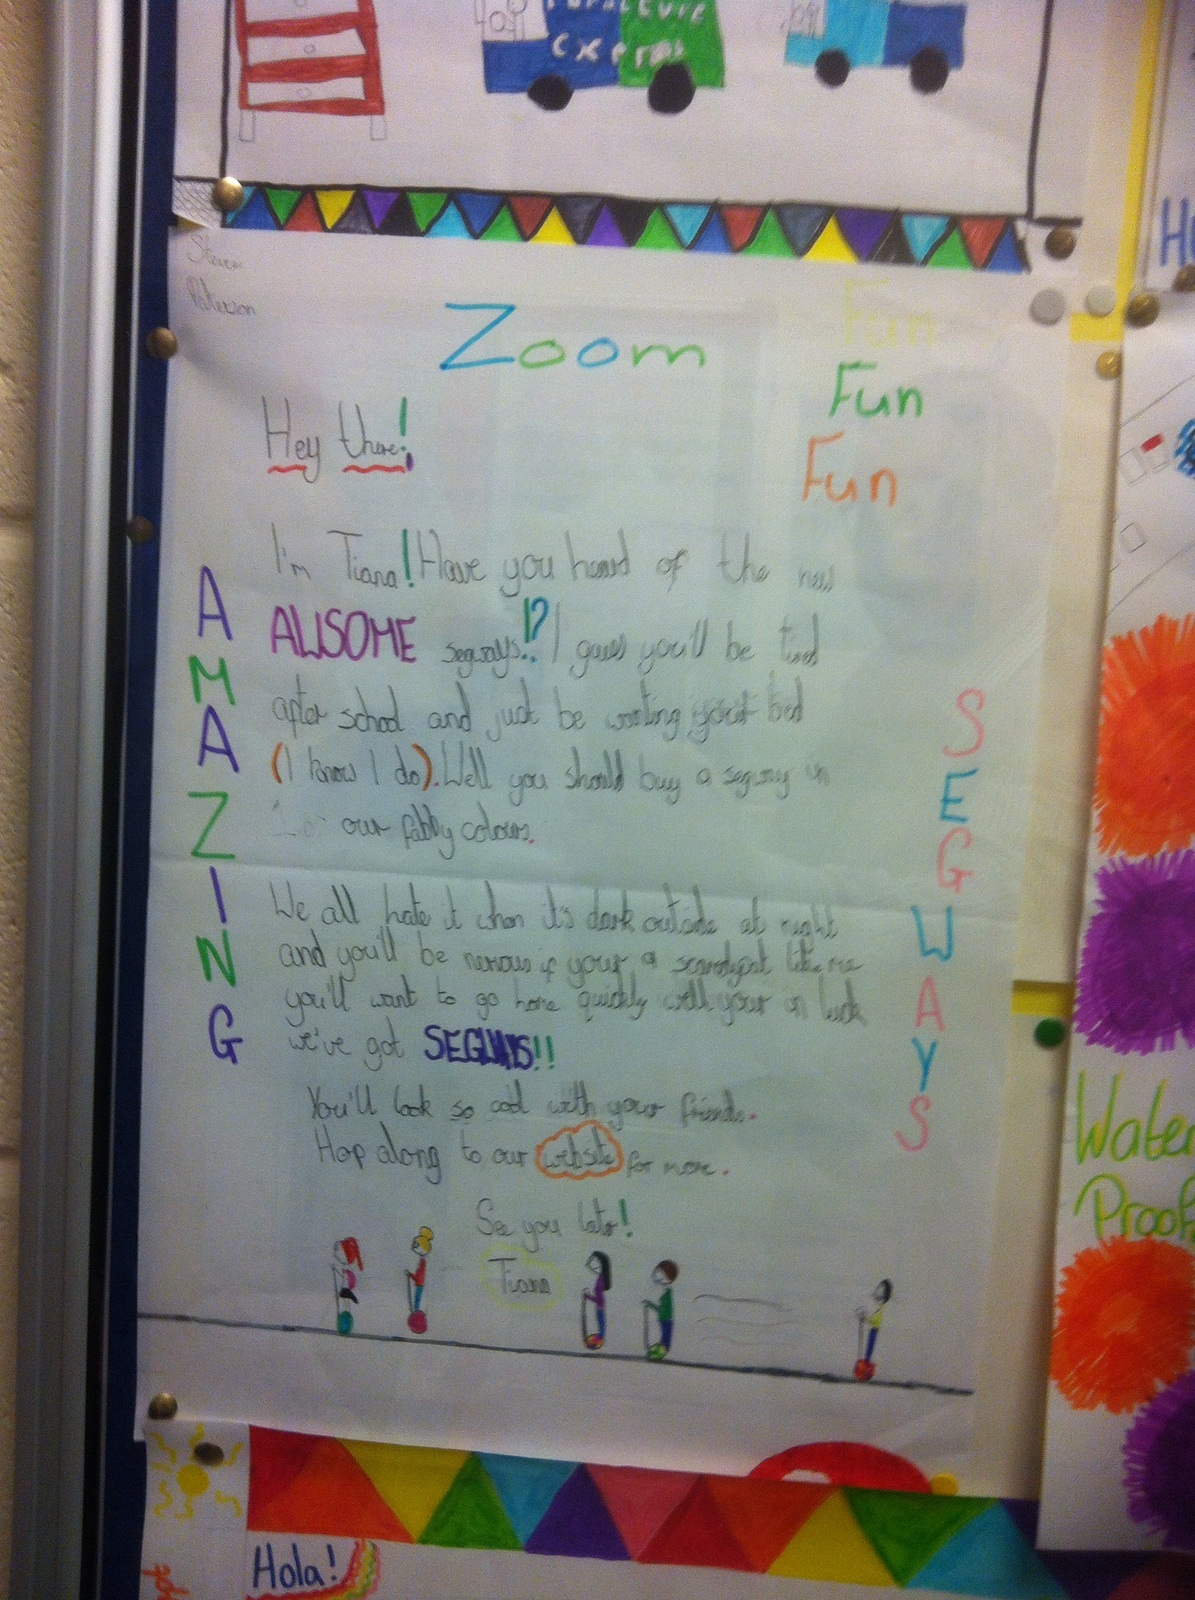 express
Paterson
Zoom
Fun
Fun
Fun
Hey there!
I'm Tiana! Have you heard of the new
AWSOME segways!? I guess you'll be tired
after school and just be wanting your bed
(I know I do). Well you should buy a segway in
our fabby colours.
We all hate it when it's dark outside at night
and you'll be nervous if your a scaredycat like me
you'll want to go home quickly well your in luck
we've got SEGWAYS!!
You'll look so cool with your friends.
Hop along to our website for more.
See you later!
Tiana
AMAZING
SEGWAYS
Water
Proof
Hola!